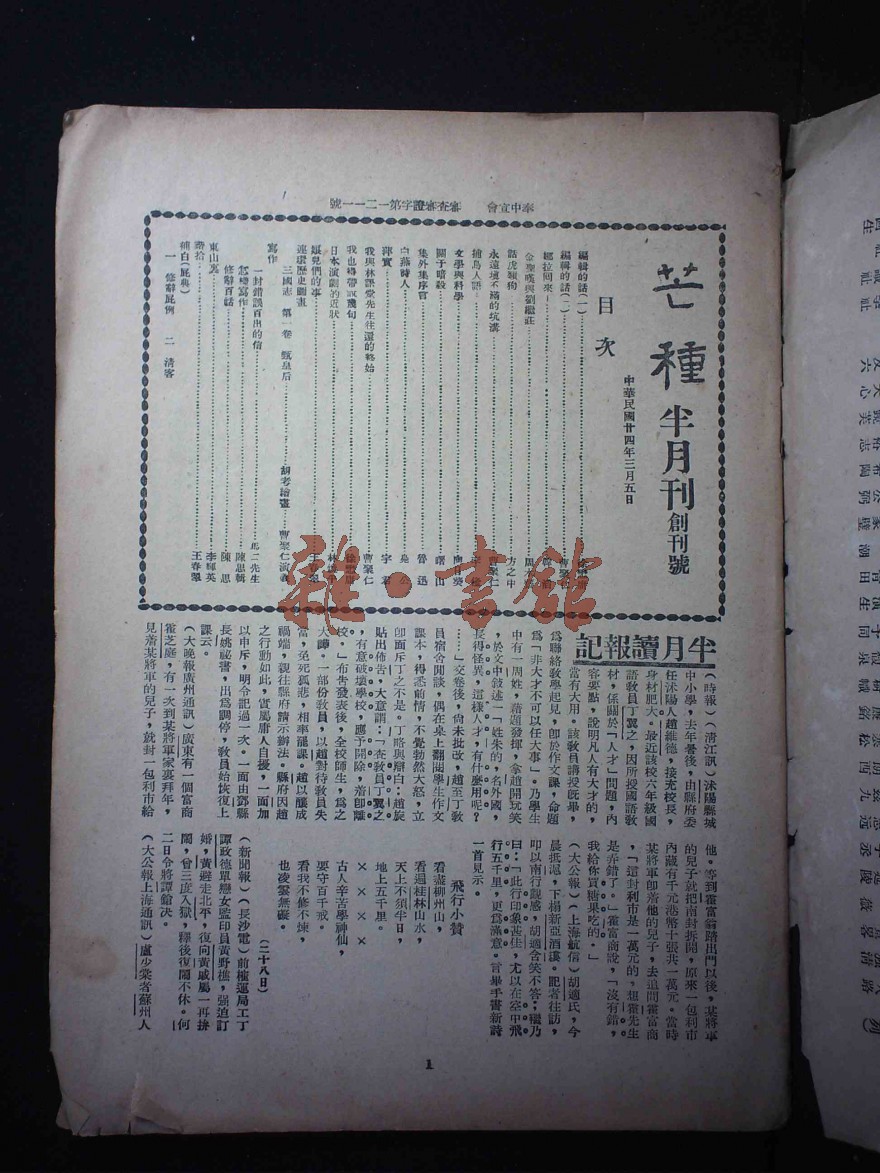 奉中宣會 審查審證字第一二一一號
芒種 半月刊 創刊號
中華民國廿四年三月五日
目次
編輯的話(一)
編輯的話(二) 曹聚仁
娜拉回來
金聖嘆與劉繼莊 周
話虎類狗 方之中
永遠填不滿的坑溝 曹聚仁
捕鳥人語
文學與科學 向日葵
關于暗殺 曙山
集外集序言 魯迅
白蕪時人 是公
釋實 宇
我與林語堂先生往還的終始 曹聚仁
我也得帶說幾句
日本演劇的近狀 林
娘兒們的事 王春翠
連環歷史圖畫
三國志 第一卷 甄皇后 胡考繪畫 曹聚仁演義
寫作
一封錯誤百出的信 馬二先生
怎樣寫作 陳思
修辭百話 陳思
東山裏 李輝英
雜拾 王春翠
補白(屁典)
一 修辭屁例 二 清客
半月讀報記
(時報)(清江訊)沭陽縣城
中小學,去年暑後,由縣府委
任沭陽人趙維德,接充校長,
身材肥大。最近該校六年級國
語教員丁翼之,因所授國語教
材,係關於「人才」問題,內
容要點,說明凡人有大才的,
當有大用。該教員講授既畢,
為聯絡教學起見,卽於作文課,命題
為「非大才不可以任大事」。乃學生
中有一周姓,藉題發揮,拿趙開玩笑
,於文中敍述一「姓朱的,名外國,
長得怪異,這樣人才,有什麼用呢?
……」文卷後,尙未批改,趙至丁敎
員宿舍閒談,偶在桌上翻閱學生作文
課本,得悉前情,不覺勃然大怒,立
卽面斥丁之不是。丁略與辯白:趙旋
貼出佈告,大意謂:「查敎員丁翼之
,有意破壞學校,應予開除,着卽離
校。」布告發表後,全校師生,為之
大譁。一部份敎員,以趙對待敎員失
當,至死狐悲,相率罷課。趙以釀成
禍端,親往縣府請示辦法。縣府因趙
之行動如此,實屬庸人自擾,一面加
以申斥,明令記過一次。一面由鄧縣
長姚祕書,出為調停,敎員始恢復上
課云。
(大晚報廣州通訊)廣東有一個富商
霍芝庭,有一次到某將軍家裏拜年,
見着某將軍的兒子,就封一包利市給
他。等到霍富翁踏出門以後,某將軍
的兒子就把南封拆開,原來一包利市
內藏有千元港幣十張共一萬元。當時
某將軍卽着他的兒子,去追問霍富商
,「這封利市是一萬元的,想霍先生
是弄錯了。」霍富商說,「沒有錯,
我給你買糖果吃的。」
(大公報)(上海航信)胡適氏,今
晨抵滬,下榻新亞酒店。記者往訪,
叩以南行觀感,胡適含笑不答;繼乃
曰:「此行印象甚佳,尤以在空中飛
行五千里,更為滿意。言畢手書新詩
一首見示。
飛行小贊
看盡柳州山,
看遍桂林山水,
天上不須半日,
地上五千里。
××××
古人辛苦學神仙,
要守百千戒。
看我不修不煉,
也凌雲無礙。
(二十八日)
(新聞報)(長沙電)前榷運局工丁
譚政德單戀女監印員黃野樵,强迫訂
婚,黃避走北平,復向黃戚屬一再拚
鬧,曾三度入獄,釋後復鬧不休。何
二日令將譚鎗決。
(大公報上海通訊)盧少棠者蘇州人
1